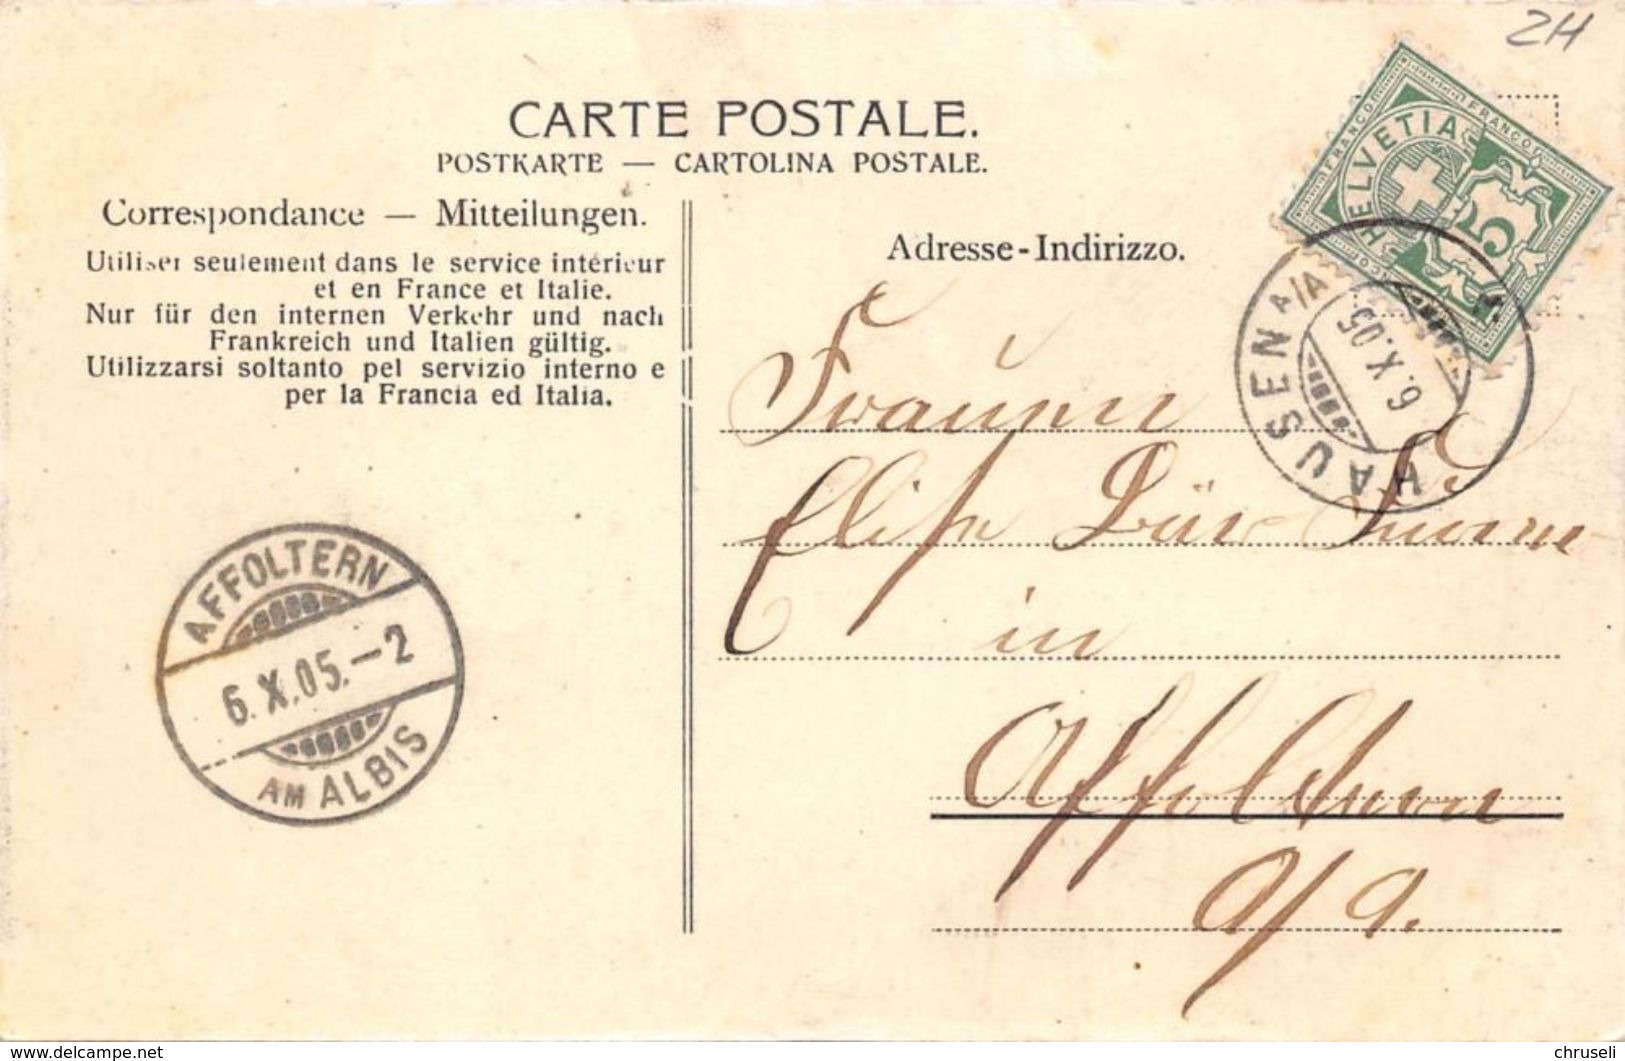 ZH
CARTE POSTALE.
POSTKARTE — CARTOLINA POSTALE.
Correspondance — Mitteilungen.
Utiliser seulement dans le service intérieur
et en France et Italie.
Nur für den internen Verkehr und nach
Frankreich und Italien gültig.
Utilizzarsi soltanto pel servizio interno e
per la Francia ed Italia.
Adresse-Indirizzo.
FRANCO
FRANCO
HELVETIA
FRANCO
5
HAUSEN A/A
6.X.05
Elise Dür
in
Affoltern
a/A.
AFFOLTERN
6.X.05.–2
AM ALBIS
delcampe.net
chruseli